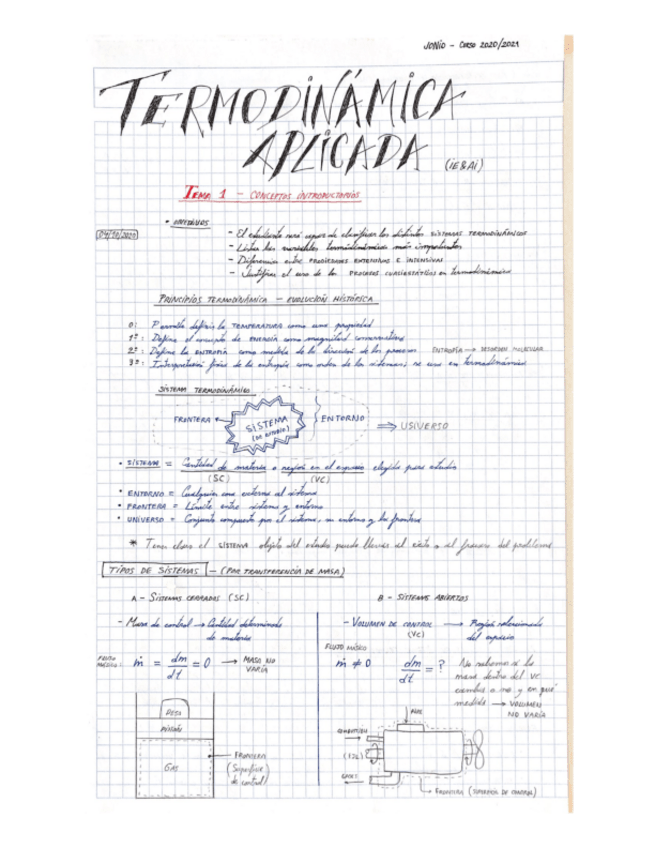 JUNIO - CURSO 2020/2021
TERMODINÁMICA
APLICADA (IE&AI)
TEMA 1 - CONCEPTOS INTRODUCTORIOS
• OBJETIVOS
04/10/2020
- El estudiante será capaz de clasificar los distintos SISTEMAS TERMODINÁMICOS
- Listar las variables termodinámicas más importantes
- Diferenciar entre PROPIEDADES EXTENSIVAS E INTENSIVAS
- Justificar el uso de los PROCESOS CUASIESTÁTICOS en termodinámica
PRINCIPIOS TERMODINÁMICA - EVOLUCIÓN HISTÓRICA
0: Permite definir la TEMPERATURA como una propiedad
1º: Define el concepto de ENERGÍA como magnitud conservativa
2º: Define la ENTROPÍA como medida de la dirección de los procesos ENTROPÍA → DESORDEN MOLECULAR
3º: Interpretación física de la entropía como orden de los sistemas; se usa en termodinámica
SISTEMA TERMODINÁMICO
FRONTERA
SISTEMA
(DE ESTUDIO)
ENTORNO
⇒ USIVERSO
• SISTEMA = Cantidad de materia o región en el espacio elegida para estudio
(SC) (VC)
• ENTORNO = Cualquier cosa externa al sistema
• FRONTERA = Límite entre sistema y entorno
• UNIVERSO = Conjunto compuesto por el sistema, su entorno y la frontera
* Tener claro el SISTEMA objeto del estudio puede llevar al éxito o al fracaso del problema
TIPOS DE SISTEMAS - (POR TRANSFERENCIA DE MASA)
A - SISTEMAS CERRADOS (SC)
- Masa de control → Cantidad determinada
de materia
FLUJO
MÁSICO:
ṁ = dm/dt = 0 → MASA NO
VARÍA
PESA
PISTÓN
GAS
FRONTERA
(Superficie
de control)
B - SISTEMAS ABIERTOS
- VOLUMEN DE CONTROL → Región seleccionada
(VC) del espacio
FLUJO MÁSICO
ṁ ≠ 0 dm/dt = ?
No sabemos si la
masa dentro del VC
cambia o no y en qué
medida → VOLUMEN
NO VARÍA
AIRE
COMBUSTIBLE
GASES
FRONTERA (SUPERFICIE DE CONTROL)